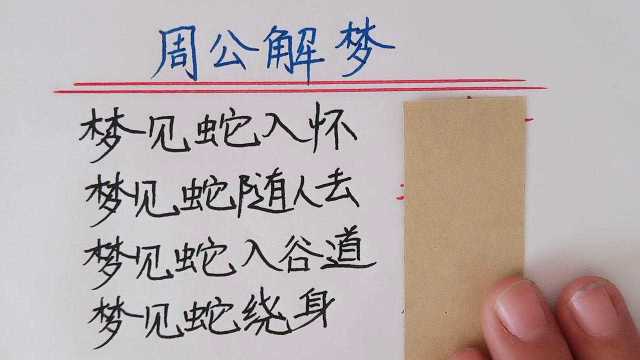 周公解梦
梦见蛇入怀
梦见蛇随人去
梦见蛇入谷道
梦见蛇绕身